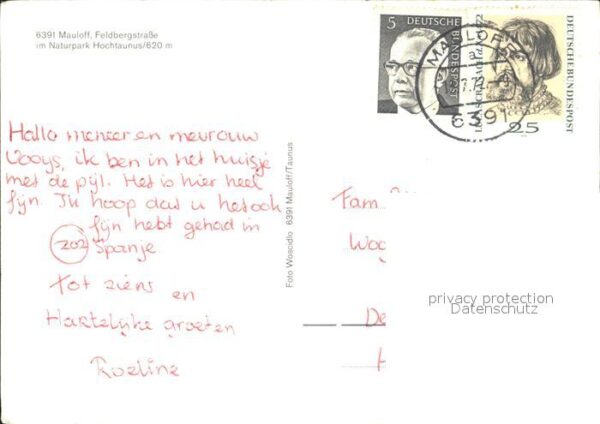 6391 Mauloff, Feldbergstraße
im Naturpark Hochtaunus/620 m
5
DEUTSCHE
BUNDESPOST
DEUTSCHE BUNDESPOST
25
MAULOFF
6391
Hallo meneer en mevrouw
Vooys, ik ben in het huisje
met de pijl. Het is hier heel
fijn. Ik hoop dat u het ook
fijn hebt gehad in
202 Spanje.
Tot ziens
en
Hartelijke groeten
Roeline
Foto Woscidlo 6391 Mauloff/Taunus
Fam
privacy protection
Datenschutz